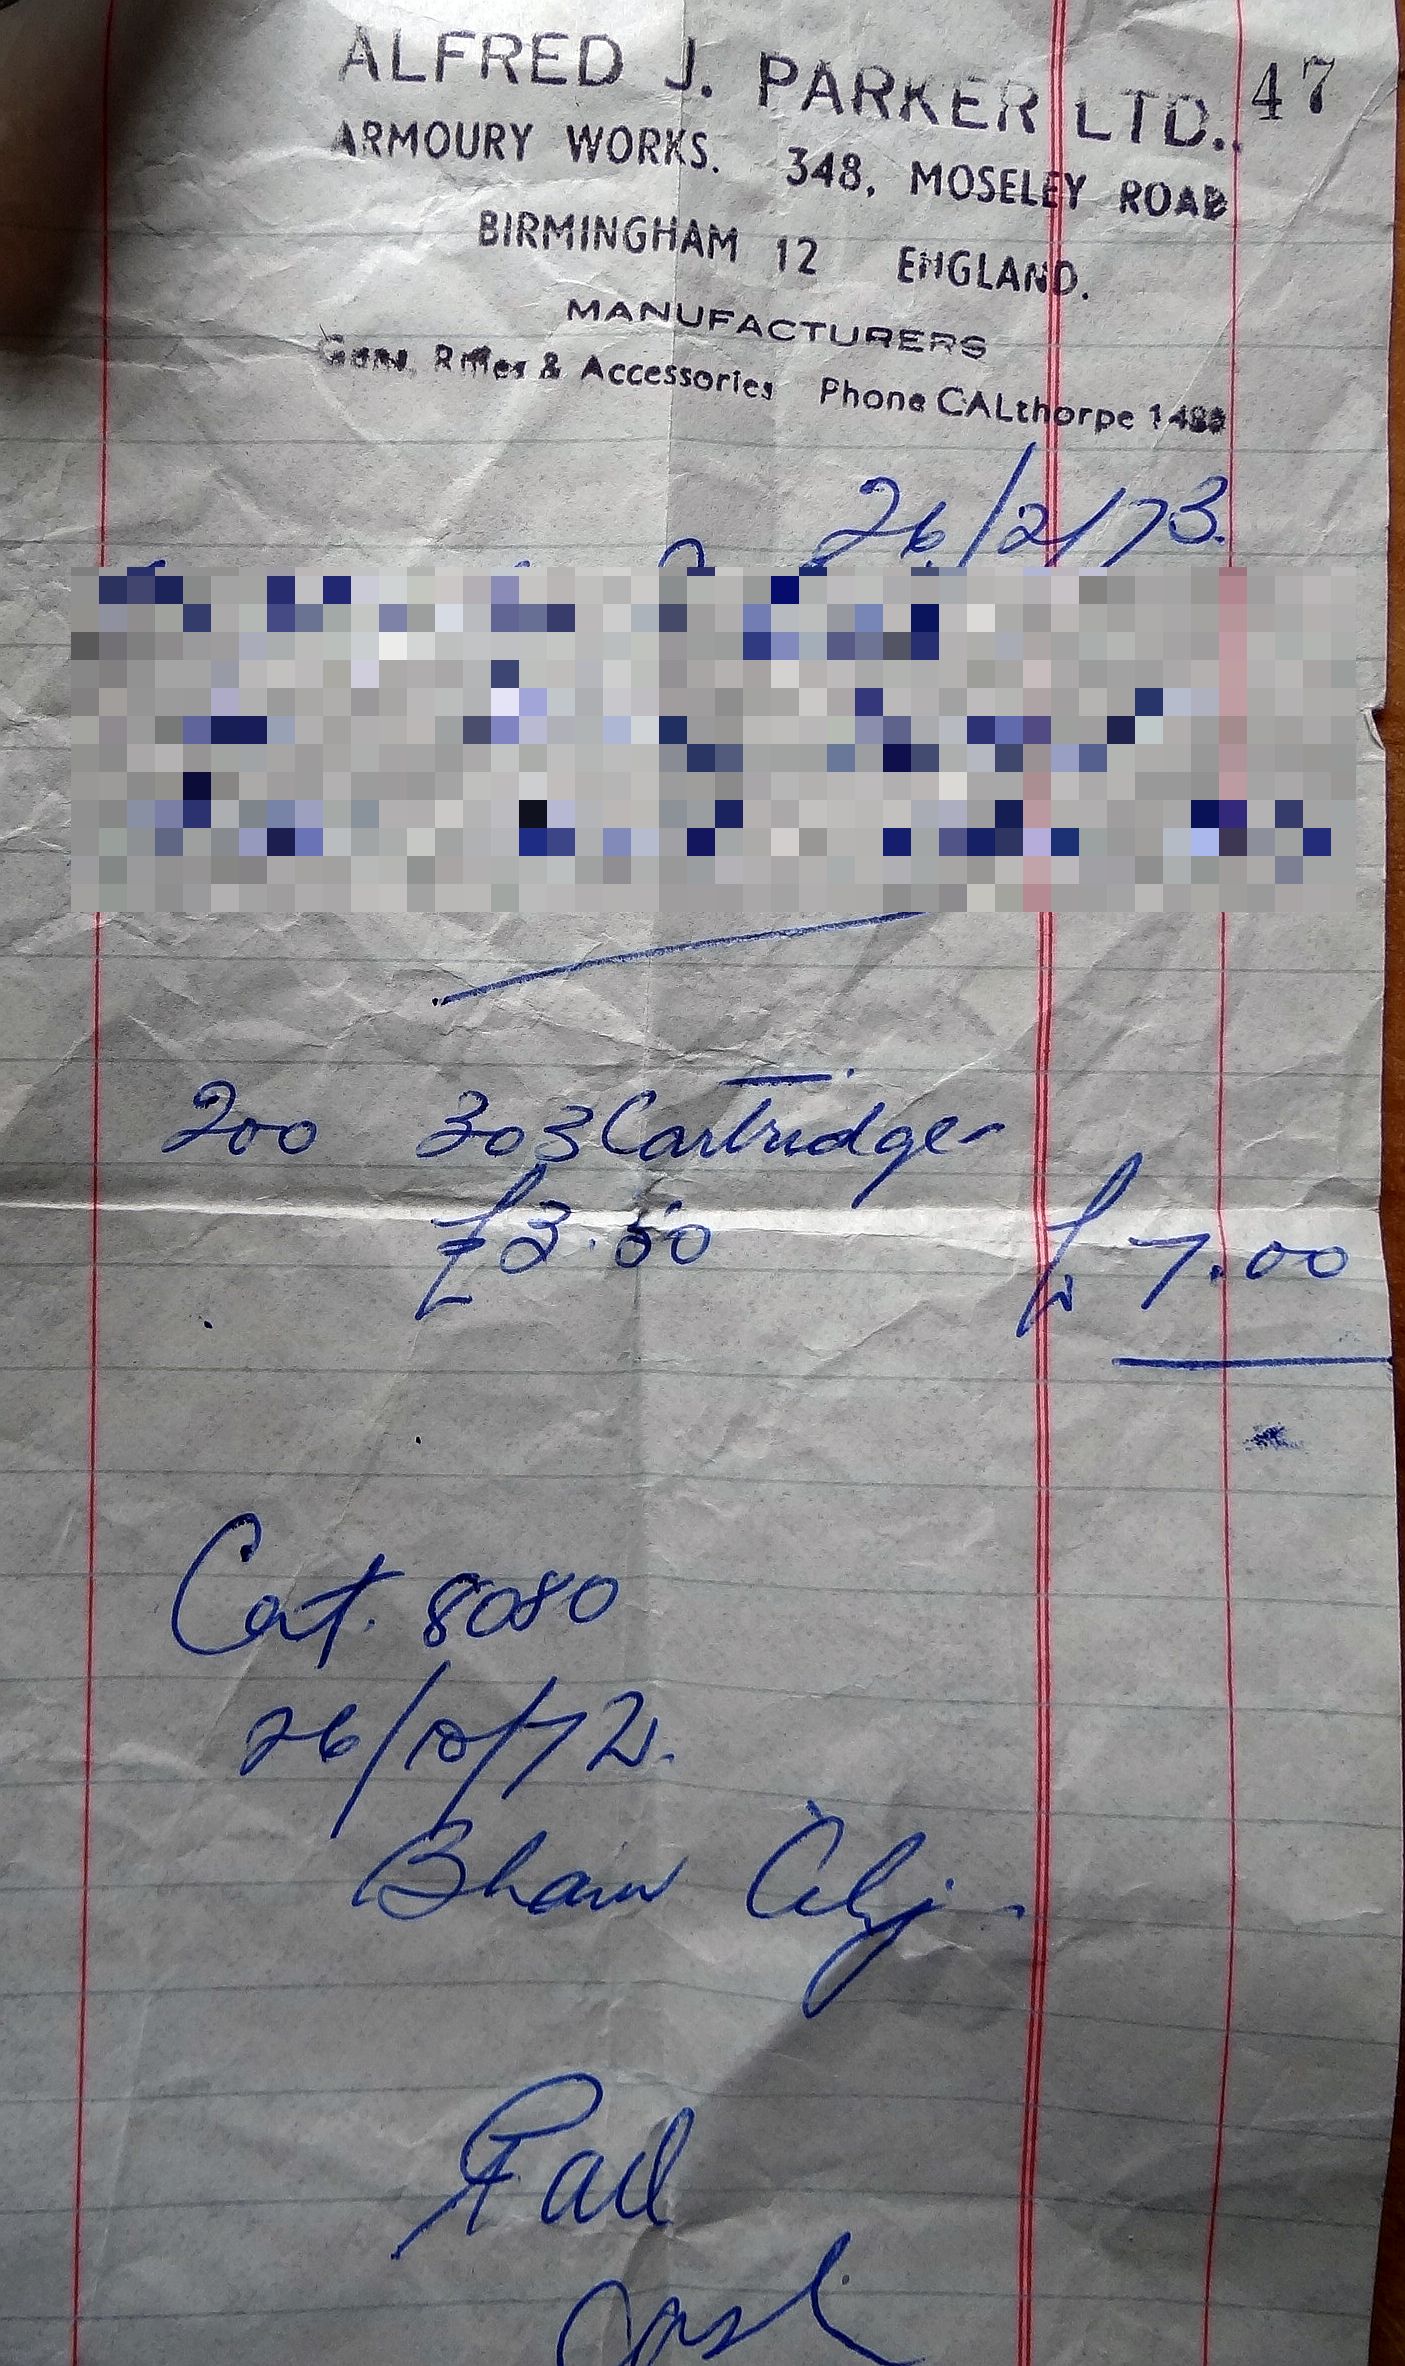 47
ALFRED J. PARKER LTD.
ARMOURY WORKS. 348, MOSELEY ROAD
BIRMINGHAM 12 ENGLAND.
MANUFACTURERS
Guns, Rifles & Accessories Phone CALthorpe
26/2/73.
200 303 Cartridge
£3.50 £ 7.00
Cert. 8080
26/10/72.
Paid